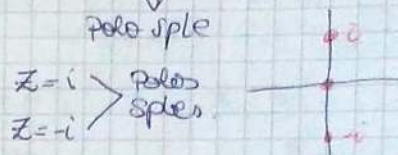 Polo sple
i
z = i
z = -i
> Polos
sples.
-i